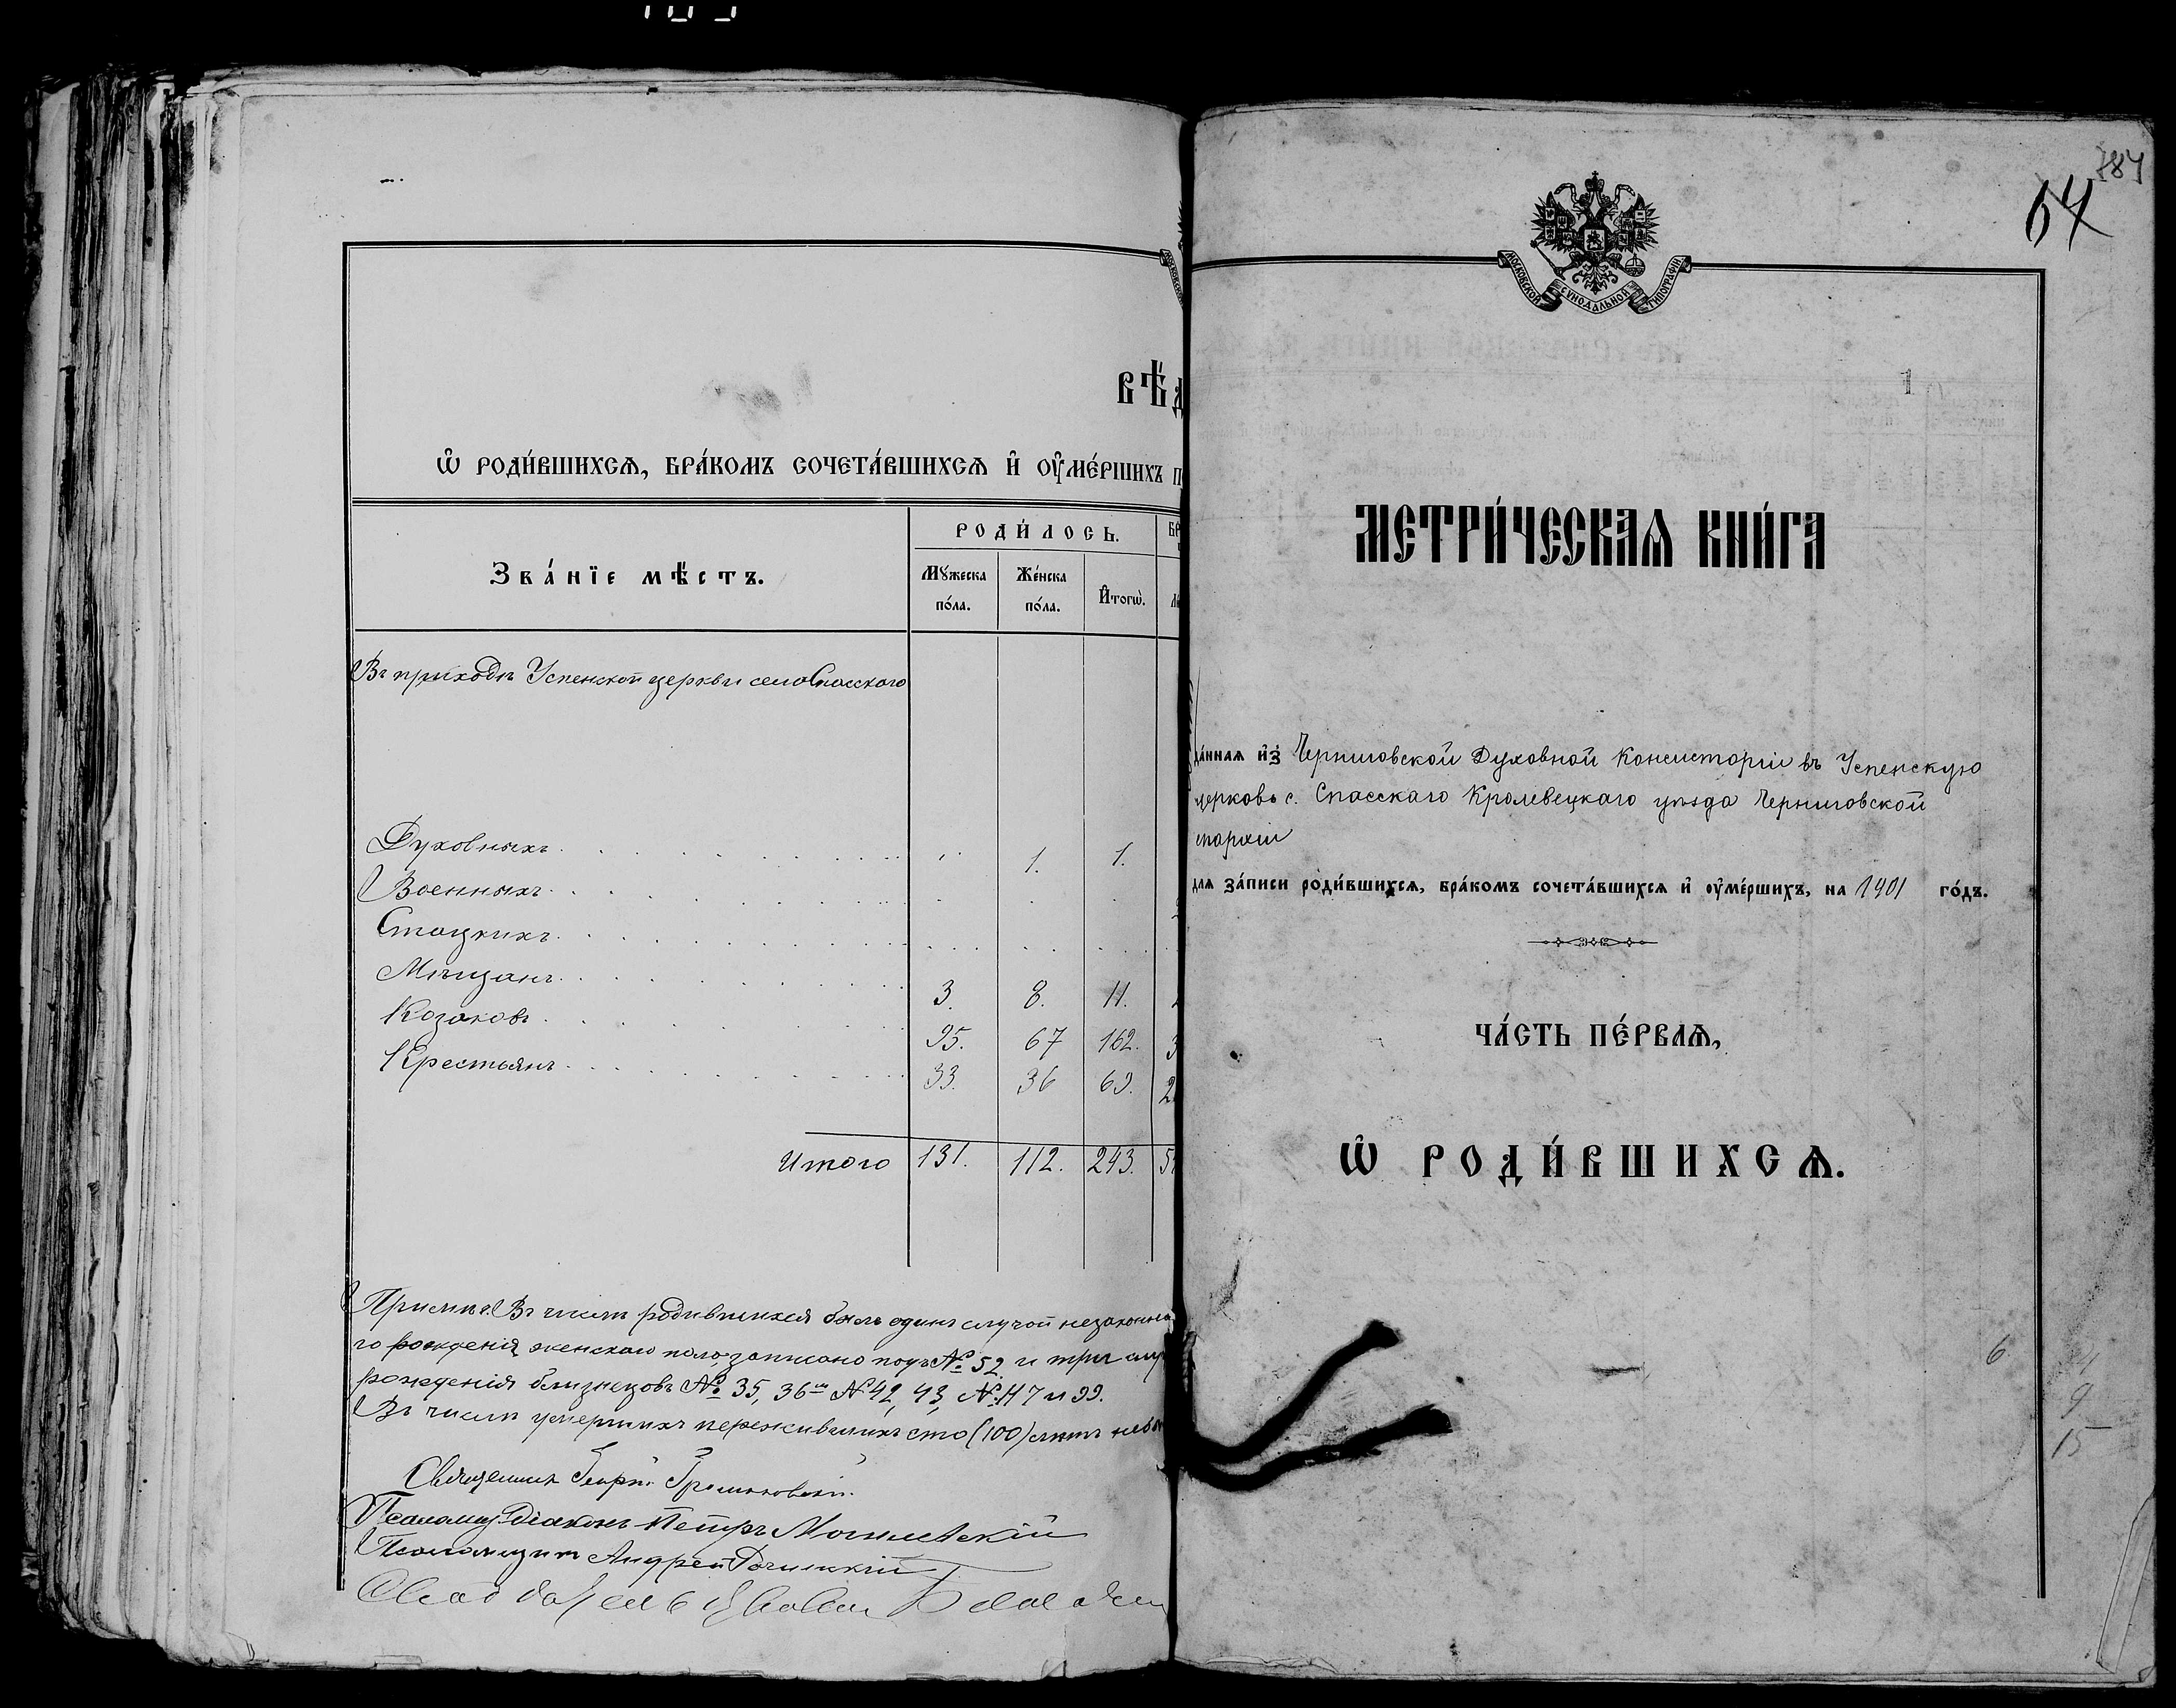 ВѢД
Ѡ҆ РОДИ́ВШИХСѦ, БРА́КОМЪ СОЧЕТА́ВШИХСѦ И҆ ОУ҆МЕ́РШИХЪ П
Зва́нїе мѣ́стъ.
РОДИ́ЛОСЬ.
БР
Мꙋ́жеска по́ла.
Же́нска по́ла.
И҆тогѡ̀.
Въ приходѣ Успенской церкви села Спасскаго
Духовныхъ 1. 1.
Военныхъ
Статскихъ
Мѣщанъ 3. 8. 11.
Козаковъ 95. 67 162. 3
Крестьянъ 33. 36 69. 2
Итого 131. 112. 243. 5
Примѣч. Въ числѣ родившихся былъ одинъ случай незаконна
го рожденія женскаго пола, записано подъ № 52 и три случ
рожденія близнецовъ № 35, 36 и № 42, 43, № 47 и 99.
Въ числѣ умершихъ пережившихъ сто (100) лѣтъ не бы
Священник Георгій
Псаломщ. Діаконъ Петръ Могилевскій
Псаломщикъ Андрей
МОСКОВСКОЙ СѴНОДАЛЬНОЙ ТИПОГРАФІИ
64
1
МЕТРИ́ЧЕСКАѦ КНИ́ГА
да́нная и҆з̾ Черниговской Духовной Консисторіи въ Успенскую
церковь с. Спасскаго Кролевецкаго уѣзда Черниговской
епархіи
для за́писи роди́вшихся, бра́комъ сочета́вшихся и҆ оу҆ме́ршихъ, на 1901 го́дъ.
ЧА́СТЬ ПЕ́РВАѦ,
Ѡ҆ РОДИ́ВШИХСѦ.
6
9
15